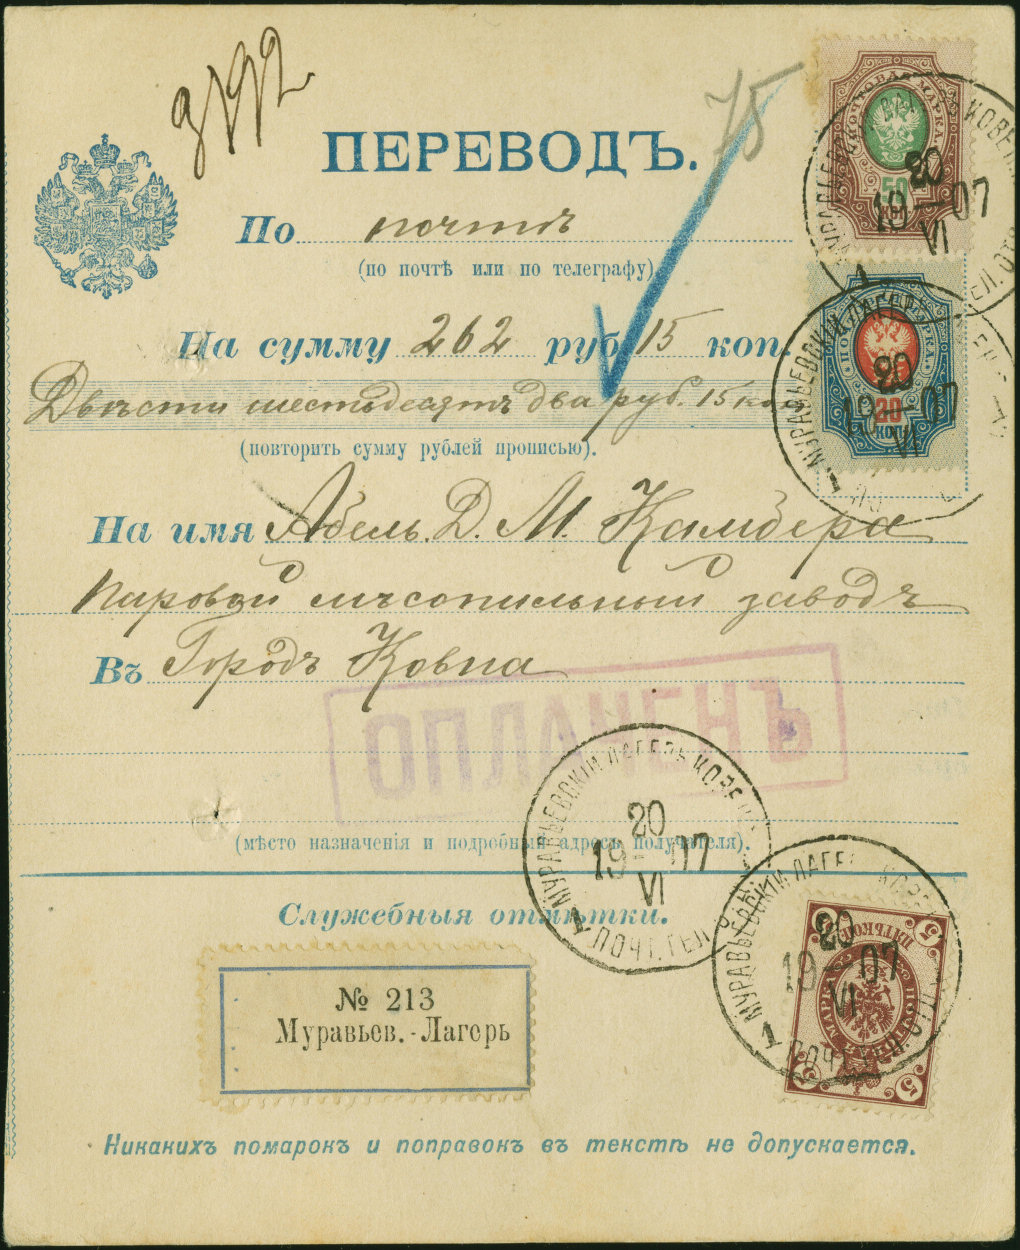 3192
75
ПЕРЕВОДЪ.
По почтѣ
(по почтѣ или по телеграфу)
На сумму 262 руб. 15 коп.
Двѣсти шестьдесятъ два руб. 15 ко
(повторить сумму рублей прописью).
На имя Абель. Д. М. Камбера
паровой лѣсопильный заводъ
Въ Городъ Ковна
ОПЛАЧЕНЪ
(мѣсто назначенія и подробный адресъ получателя).
Служебныя отмѣтки.
№ 213
Муравьев.-Лагерь
Никакихъ помарокъ и поправокъ въ текстѣ не допускается.
ПОЧТОВАЯ МАРКА
50
КОП
20
19-07
VI
ПОЧ МАРКА
20
КОП
МУРАВЬЕВСКІЙ ЛАГЕ
20
19-07
VI
1
МУРАВЬЕВСКІЙ ЛАГЕРЬ КОВЕН
20
19-07
VI
1 ПОЧТ. ТЕЛ. О
МУРАВЬЕВСКІЙ ЛАГЕ КОВЕ
20
19-07
VI
1
5 ПЯТЬ КОП. 5
ПОЧТОВАЯ МАРКА
5 5